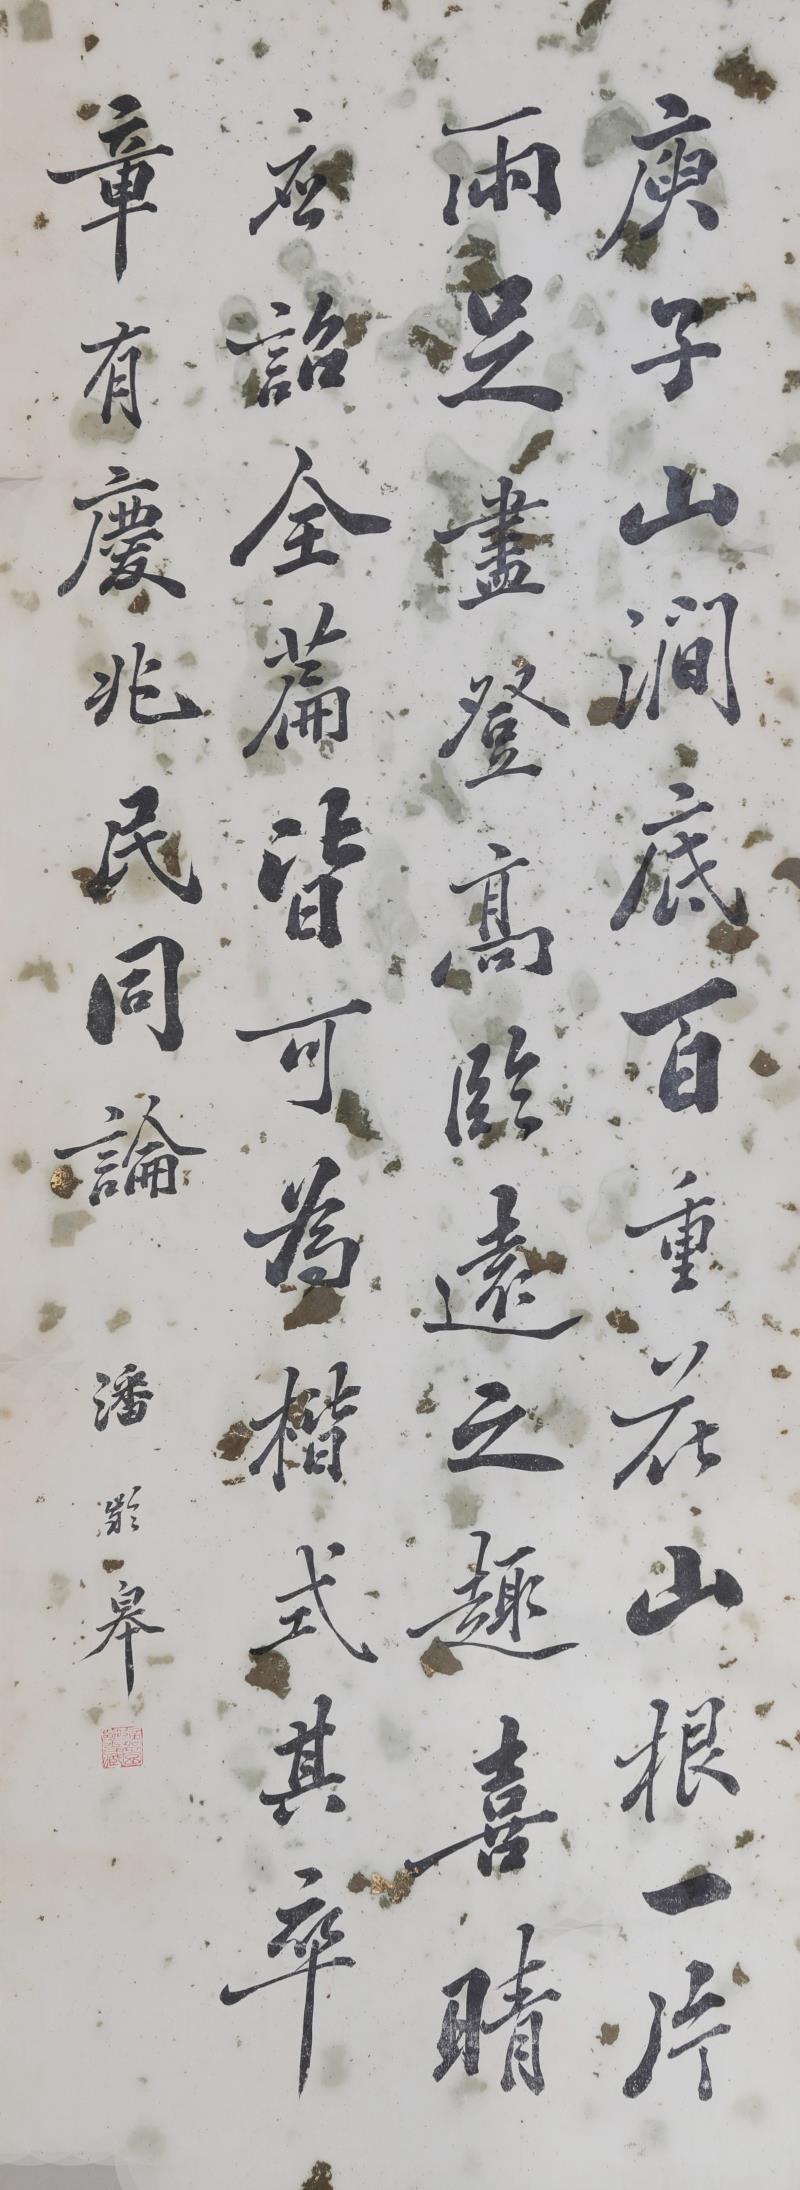 庾子山澗底百重花山根一片
雨足盡登高臨遠之趣喜晴
应詔全篇皆可為楷式其卒
章有慶兆民同論
潘齡皋